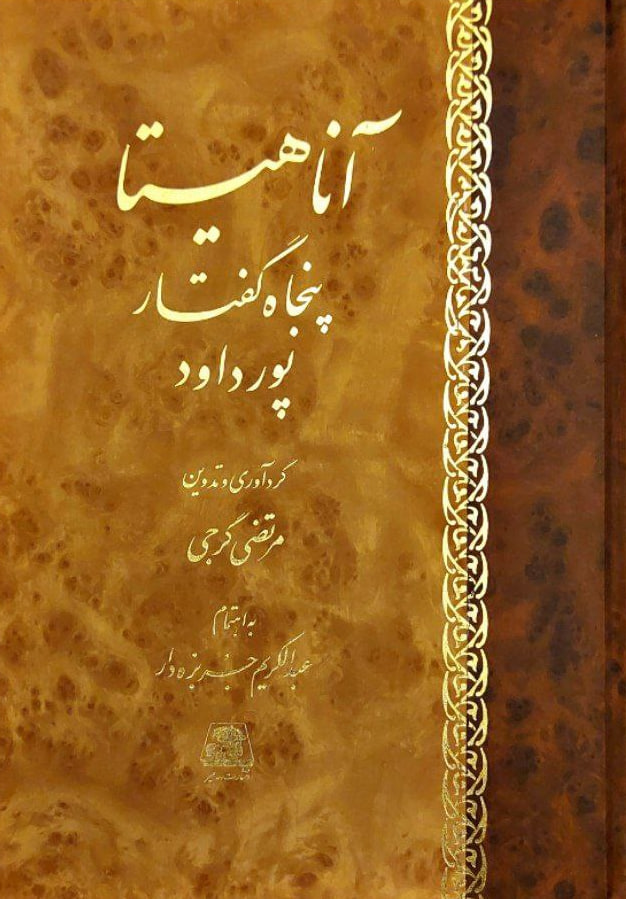 آناهیتا
پنجاه گفتار
پور داود
گردآوری و تدوین
مرتضی گرجی
به اهتمام
عبدالکریم جربزه دار